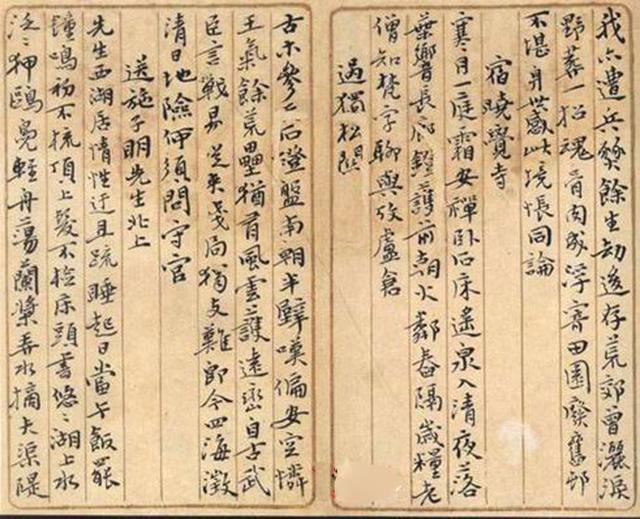 我亦遭兵燹餘生劫後存荒郊曾灑淚
野一招魂骨肉成浮寄田園廢舊邨
不堪身世感此境悵同論
宿曉覺寺
寒月一庭霜安禪臥石床遙泉入清夜落
葉響長廊鐙護前朝火鄰舂隔歲糧老
僧知梵字聊與攷盧倉
過獨松關
古木參天石磴盤南朝半壁嘆偏安空憐
王氣餘荒壘猶有風雲護遠巒自古武
臣言戰易從來局支難即今四海澂
清日地險何須問守官
送施子明先生北上
先生西湖居情性迂且疏睡起日當午飯罷
鐘鳴初不梳頂上髮不檢床頭書悠々湖上水
泛々狎鷗鳧輕舟蕩蘭槳春水摘大渠隄